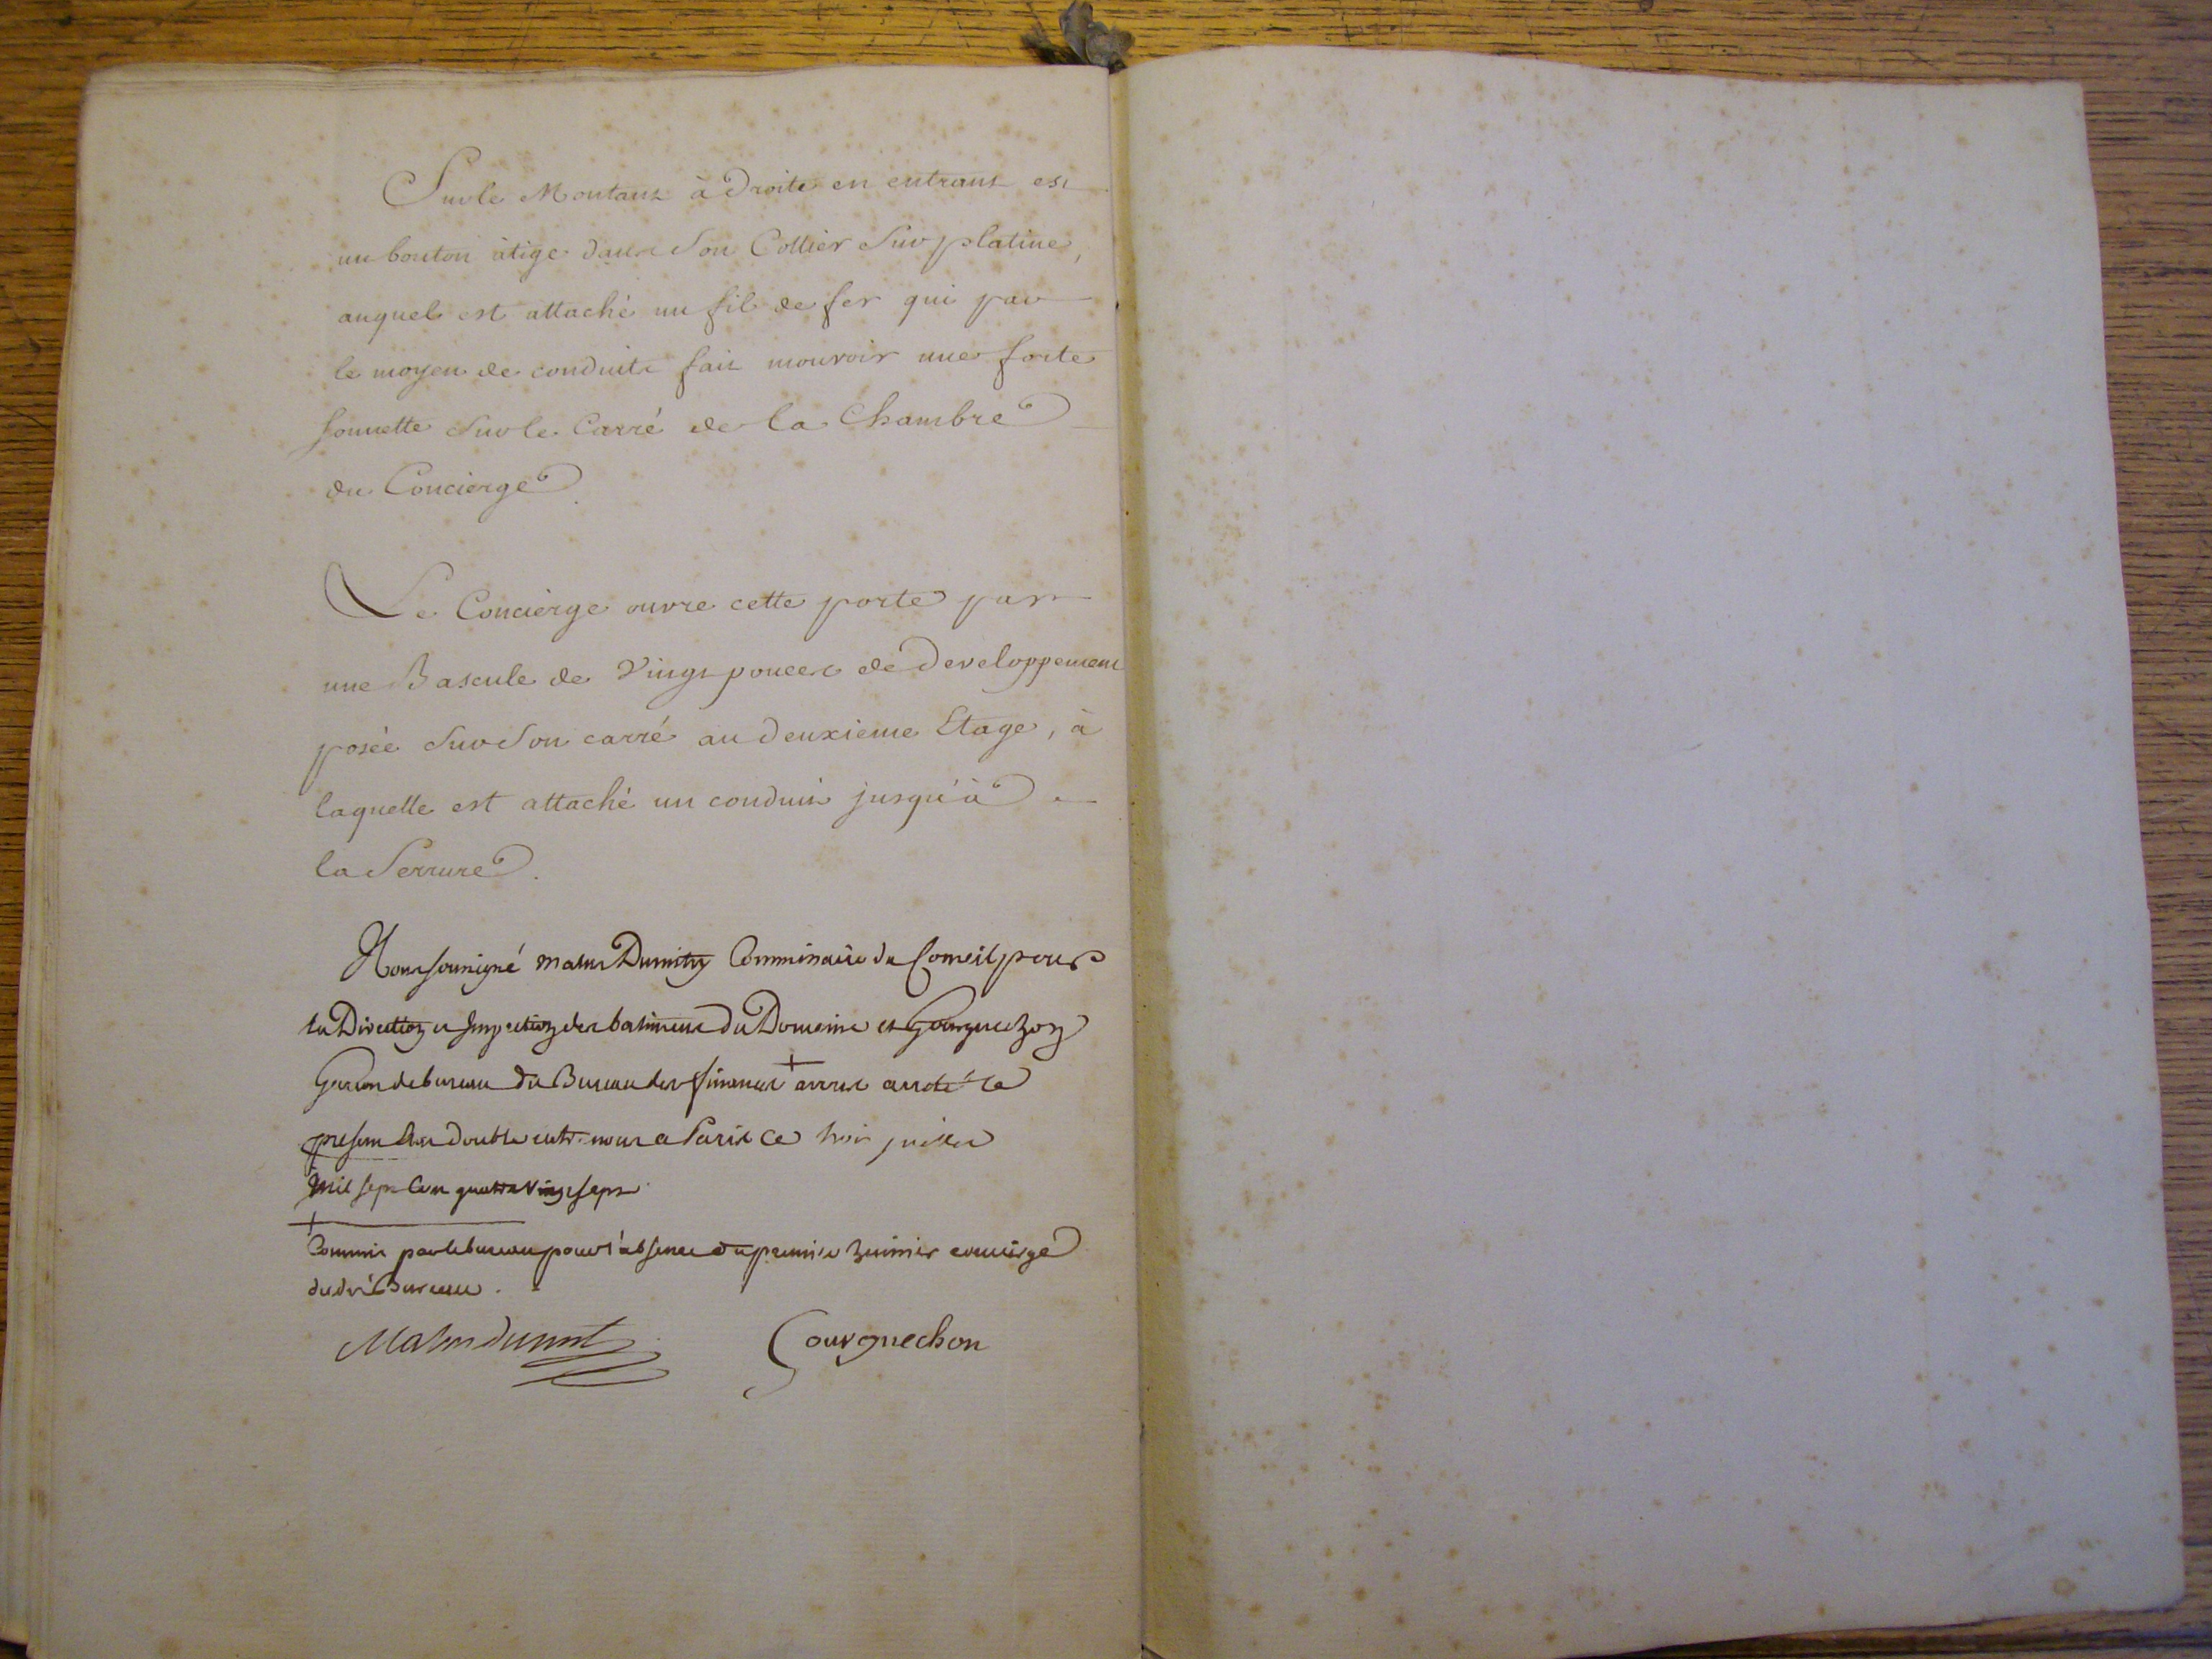 Sur le Montant à Droite en entrant est
un bouton à tige dans Son Collier Sur platine,
auquel est attaché un fil de fer qui par
le moyen de conduite fait mouvoir une forte
sonnette Sur le Carré de la Chambre
du Concierge.
Le Concierge ouvre cette porte par
une Bascule de Vingt pouces de Developpement
posée Sur Son carré au deuxieme Etage, à
laquelle est attaché un conduit jusqu'à
la Serrure.
Nous soussigné Commissaire du Conseil pour
la Direction et Inspection des batimens du Domaine et Gourguechon
Garcon de bureau du Bureau des finances + avons arreté le
present double entre nous a Paris ce trois juillet
Mil sept Cent quatre vingt sept
+
Commis par le bureau pour l'absence du premier concierge
dudit Bureau.
Gourguechon